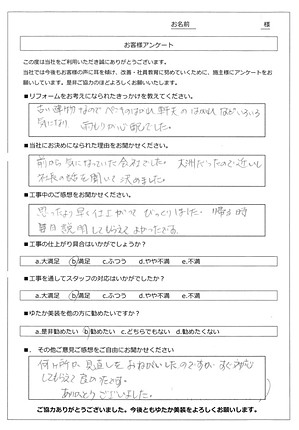 お名前　　　　様
お客様アンケート
この度は当社をご利用いただき誠にありがとうございます。
当社では今後もお客様の声に耳を傾け、改善・社員教育に努めていくために、施主様にアンケートをお
願いしています。是非ご協力のほどよろしくお願いいたします。
■リフォームをお考えになられたきっかけを教えてください。
古い建物なので
気になり　雨もりが心配でした。
■当社にお決めになられた理由をお聞かせください。
前から気になっていた会社でした。
話を聞いて決めました。
■工事中のご感想をお聞かせください。
思ったより早く仕上がって びっくりしました。 帰る時
毎日説明してもらえてよかったです。
■工事の仕上がり具合はいかがでしょうか？
a.大満足　b.満足　c.ふつう　d.やや不満　e.不満
■工事を通してスタッフの対応はいかがでしたか？
a.大満足　b.満足　c.ふつう　d.やや不満　e.不満
■ゆたか美装を他の方に勧めたいですか？
a.是非勧めたい　b.勧めたい　c.どちらでもない　d.勧めたくない
■．その他ご意見ご感想をご自由にお聞かせください
何ヶ所か 見直しをおねがいしたのですが すぐ
してもらえて良かったです。
ありがとうございました。
ご協力ありがとうございました。今後ともゆたか美装をよろしくお願いします。